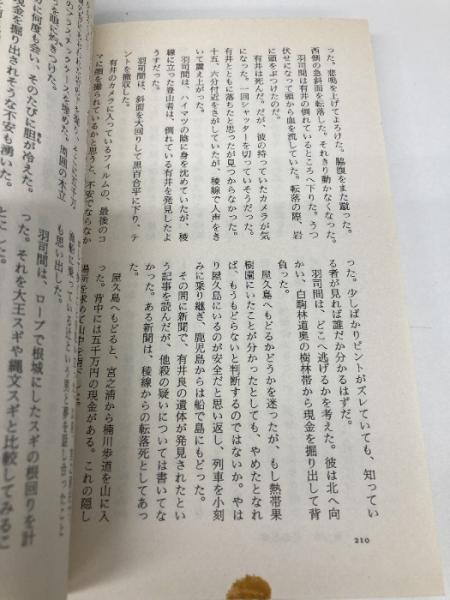 った。悲鳴を上げてよろけた。脇腹をまた蹴った。
西側の急斜面を転落した。それきり動かなくなった。
羽司間は有井の倒れているところへ下りた。うつ
伏せになって頭から血を流していた。転落の際、岩
に頭をぶつけたのだ。
有井は死んだ。だが、彼の持っていたカメラが気
になった。一回シャッターを切っていそうだった。
有井とともに落ちたと思ったが見つからなかった。
十五、六分付近をさがしていたが、稜線で人声をき
いて震え上がった。
羽司間は、ハイマツの陰に身を沈めていたが、稜
線に立った登山者は、倒れている有井を発見したよ
うすだった。
羽司間は、斜面を大回りして黒百合平に下り、テ
ントを撤収した。
有井のカメラに入っているフィルムの、最後のコ
マに顔を撮られているかと思うと、不安でならなか
った。少しばかりピントがズレていても、知ってい
る者が見れば誰だか分かるはずだ。
羽司間は、どこへ逃げるかを考えた。彼は北へ向
かい、白駒林道奥の樹林帯から現金を掘り出して背
負った。
屋久島へもどるかどうかを迷ったが、もし熱帯果
樹園にいたことが分かったとしても、やめたとなれ
ば、もうもどらないと判断するのではないか。やは
り屋久島にいるのが安全だと思い返し、列車を小刻
みに乗り継ぎ、鹿児島からは船で島にもどった。
その間に新聞で、有井良の遺体が発見されたとい
う記事を読んだが、他殺の疑いについては書いてな
かった。ある新聞は、稜線からの転落死としてあっ
た。
屋久島へもどると、宮之浦から楠川歩道を山に入
った。背中には五千万円の現金がある。これの隠し
場所を求めて山中を
210
を眼に焼きつけた。
に何度も会い、そのたびに胆が冷えた。
現金を掘り出されそうな不安も湧いた。
も思い出した。
羽司間は、ロープで根城にしたスギの根回りを計
った。それを大王スギや縄文スギと比較してみるこ
とにした。